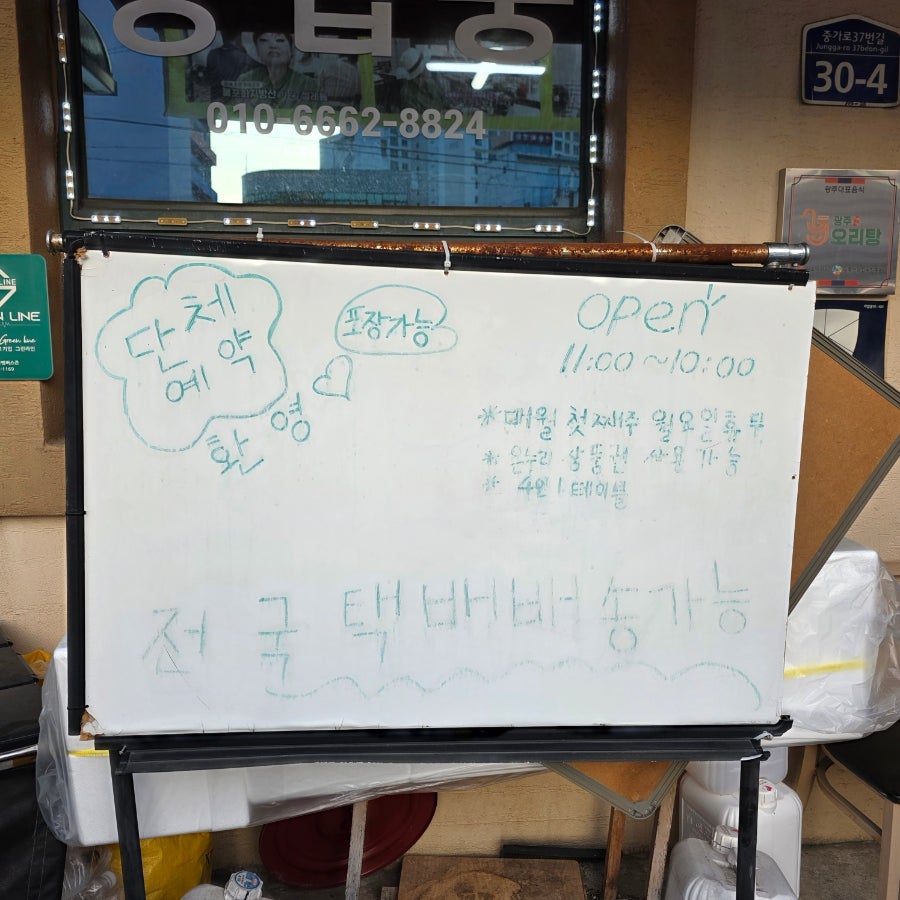 010-6662-8824
중가로37번길
Jungga-ro 37beon-gil
30-4
광주대표음식
광주
오리탕
LINE
Green line
단체
예약
환영
포장가능
open
11:00 ~10:00
※ 매월 첫째주 월요일 휴무
※ 온누리 상품권 사용가능
※ 4인 1테이블
전국택배배송가능